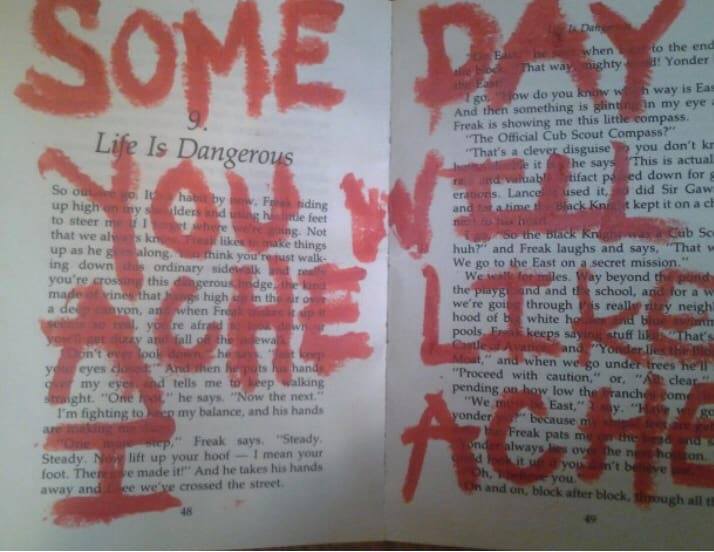 SOME DAY
YOU WILL
ACHE LIKE
I ACHE
9.
Life Is Dangerous
So out we go. It's a habit by now, Freak riding
up high on my shoulders and using his little feet
to steer me if I where we're going. Not
that we always know. Freak likes to make things
up as he goes along. think you're just walk-
ing down this ordinary sidewalk and really
you're crossing this dangerous bridge, the kind
made of vines that hangs high up in the air over
a deep canyon, and when Freak makes it up it
seems so real, you're afraid to look down or
you'll get dizzy and fall off the sidewalk.
"Don't ever look down," he says. "Just keep
your eyes closed." And then he puts his hands
over my eyes and tells me to keep walking
straight. "One foot," he says. "Now the next."
I'm fighting to keep my balance, and his hands
are making me
"One more step," Freak says. "Steady.
Steady. Now lift up your hoof — I mean your
foot. There, we made it!" And he takes his hands
away and I see we've crossed the street.
48
Life Is Dangerous
"Go East," he says when to the end
the block. "That way, mighty Yonder
the East."
I go, "How do you know which way is Eas
And then something is glinting in my eye
Freak is showing me this little compass.
"The Official Cub Scout Compass?"
"That's a clever disguise you don't kn
it he says. "This is actual
and valuable artifact passed down for g
erations. Lancelot used it, so did Sir Gaw
and for a time the Black Knight kept it on a ch
next to his heart."
"So the Black Knight was a Cub Sc
huh?" and Freak laughs and says, "That w
We go to the East on a secret mission."
We walk for miles. Way beyond the pond
the playground and the school, and for a w
we're going through this really ritzy neigh
hood of big white houses and blue swimm
pools. Freak keeps saying stuff like, "That's
Castle of Avarice," and, "Yonder lies the Blo
Moat," and when we go under trees he'll
"Proceed with caution," or, "All clear,"
pending on how low the branches come
"We must East," I say. "Have go
yonder because my
Freak pats me on the head and s
"Yonder always lies over the next horizon.
could look it up if you don't believe me."
"Oh, I believe you.
On and on, block after block, through all th
49